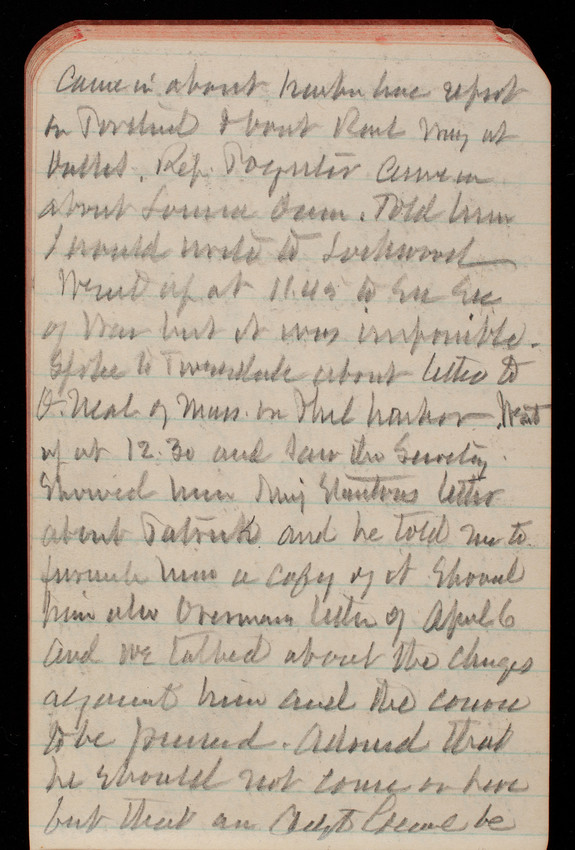 Came in about harbor line report
on Portland & about Boat Way at
Dalles. Rep. Poynter came in
about Louisa Dam. Told him
I would write to Lockwood
Went up at 11.45 to see Sec
of War but it was impossible.
Spoke to Tweedale about letter to
O.Neal of Mass. on Hul harbor. Went
up at 12.30 and saw the Secretary.
Showed him Maj Stantons letter
about Patrick and he told me to
furnish him a copy of it Showed
him also letter of April 6
and we talked about the charges
against him and the course
to be pursued. Advised that
he should not come on here
but that an should be